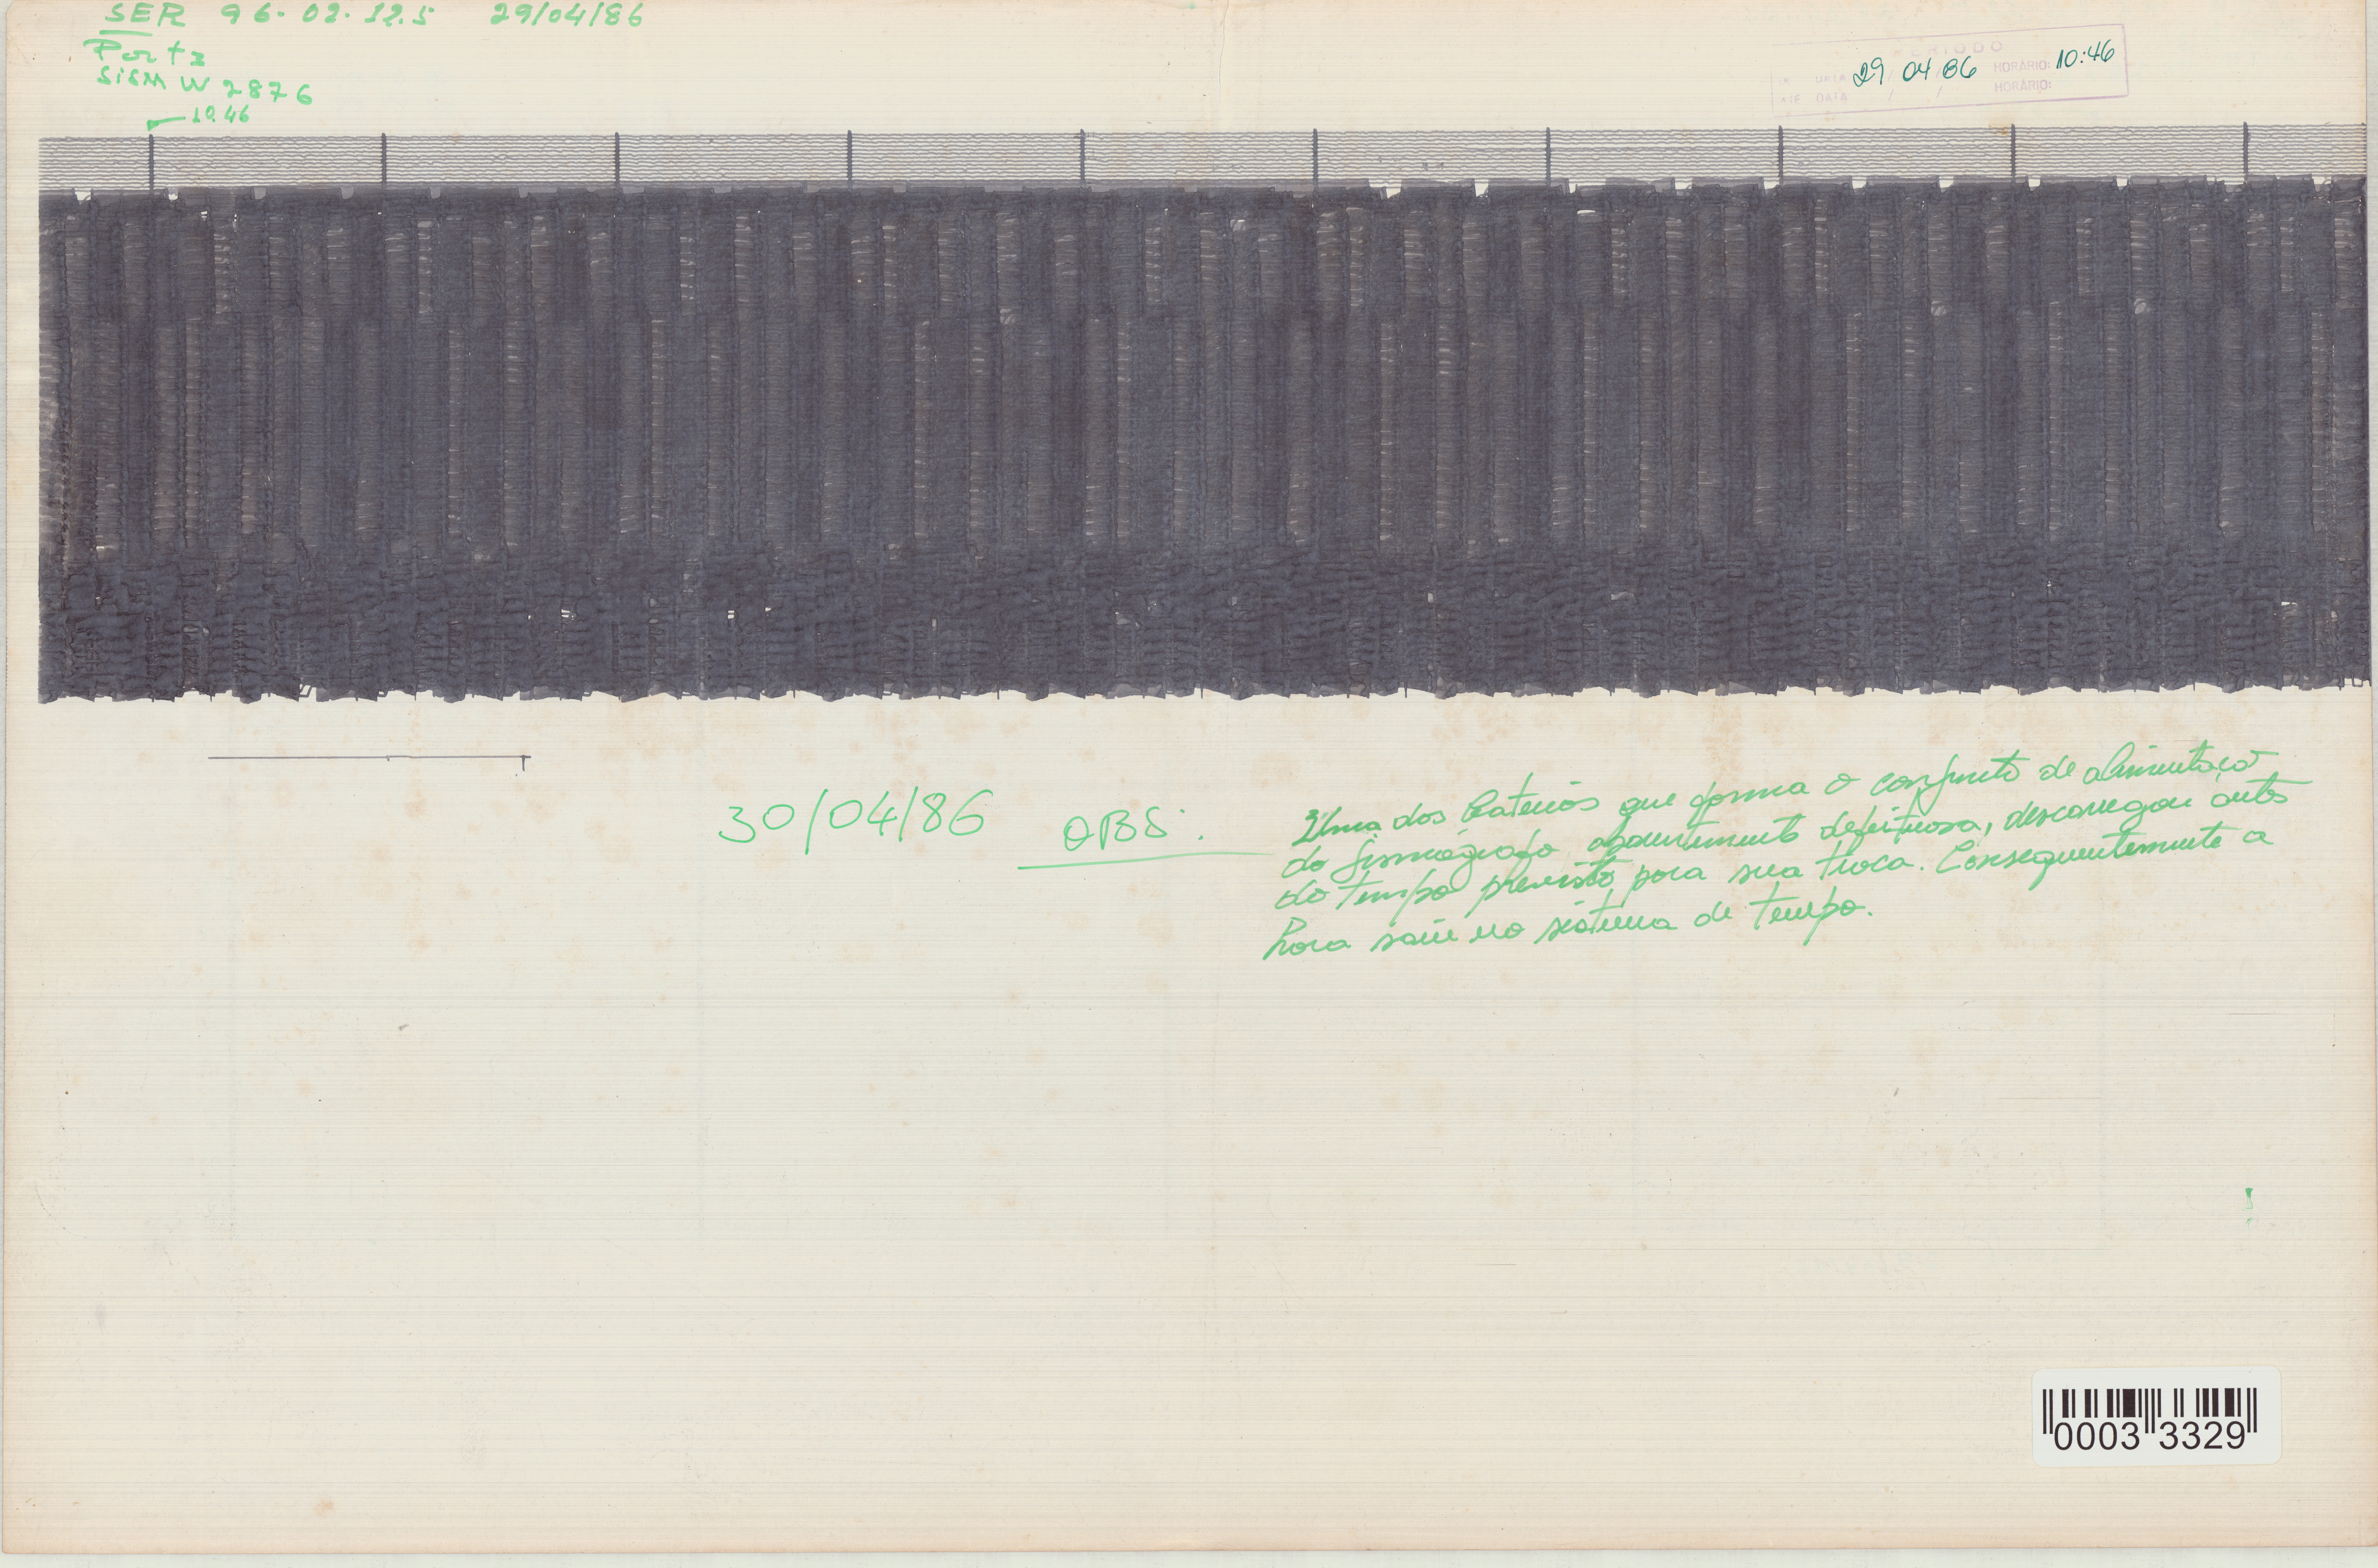 SER 96.02.12.5 29/04/86
Porta
SISM W 2876
10.46
PERIODO
DE DATA 29 04 86 HORÁRIO: 10:46
ATÉ DATA / / HORÁRIO:
30/04/86 OBS.
Uma das baterias que forma o conjunto de alimentação
do sismógrafo, aparentemente defeituosa, descarregou antes
do tempo previsto para sua troca. Consequentemente a
hora saiu no sistema de tempo.
0003 3329